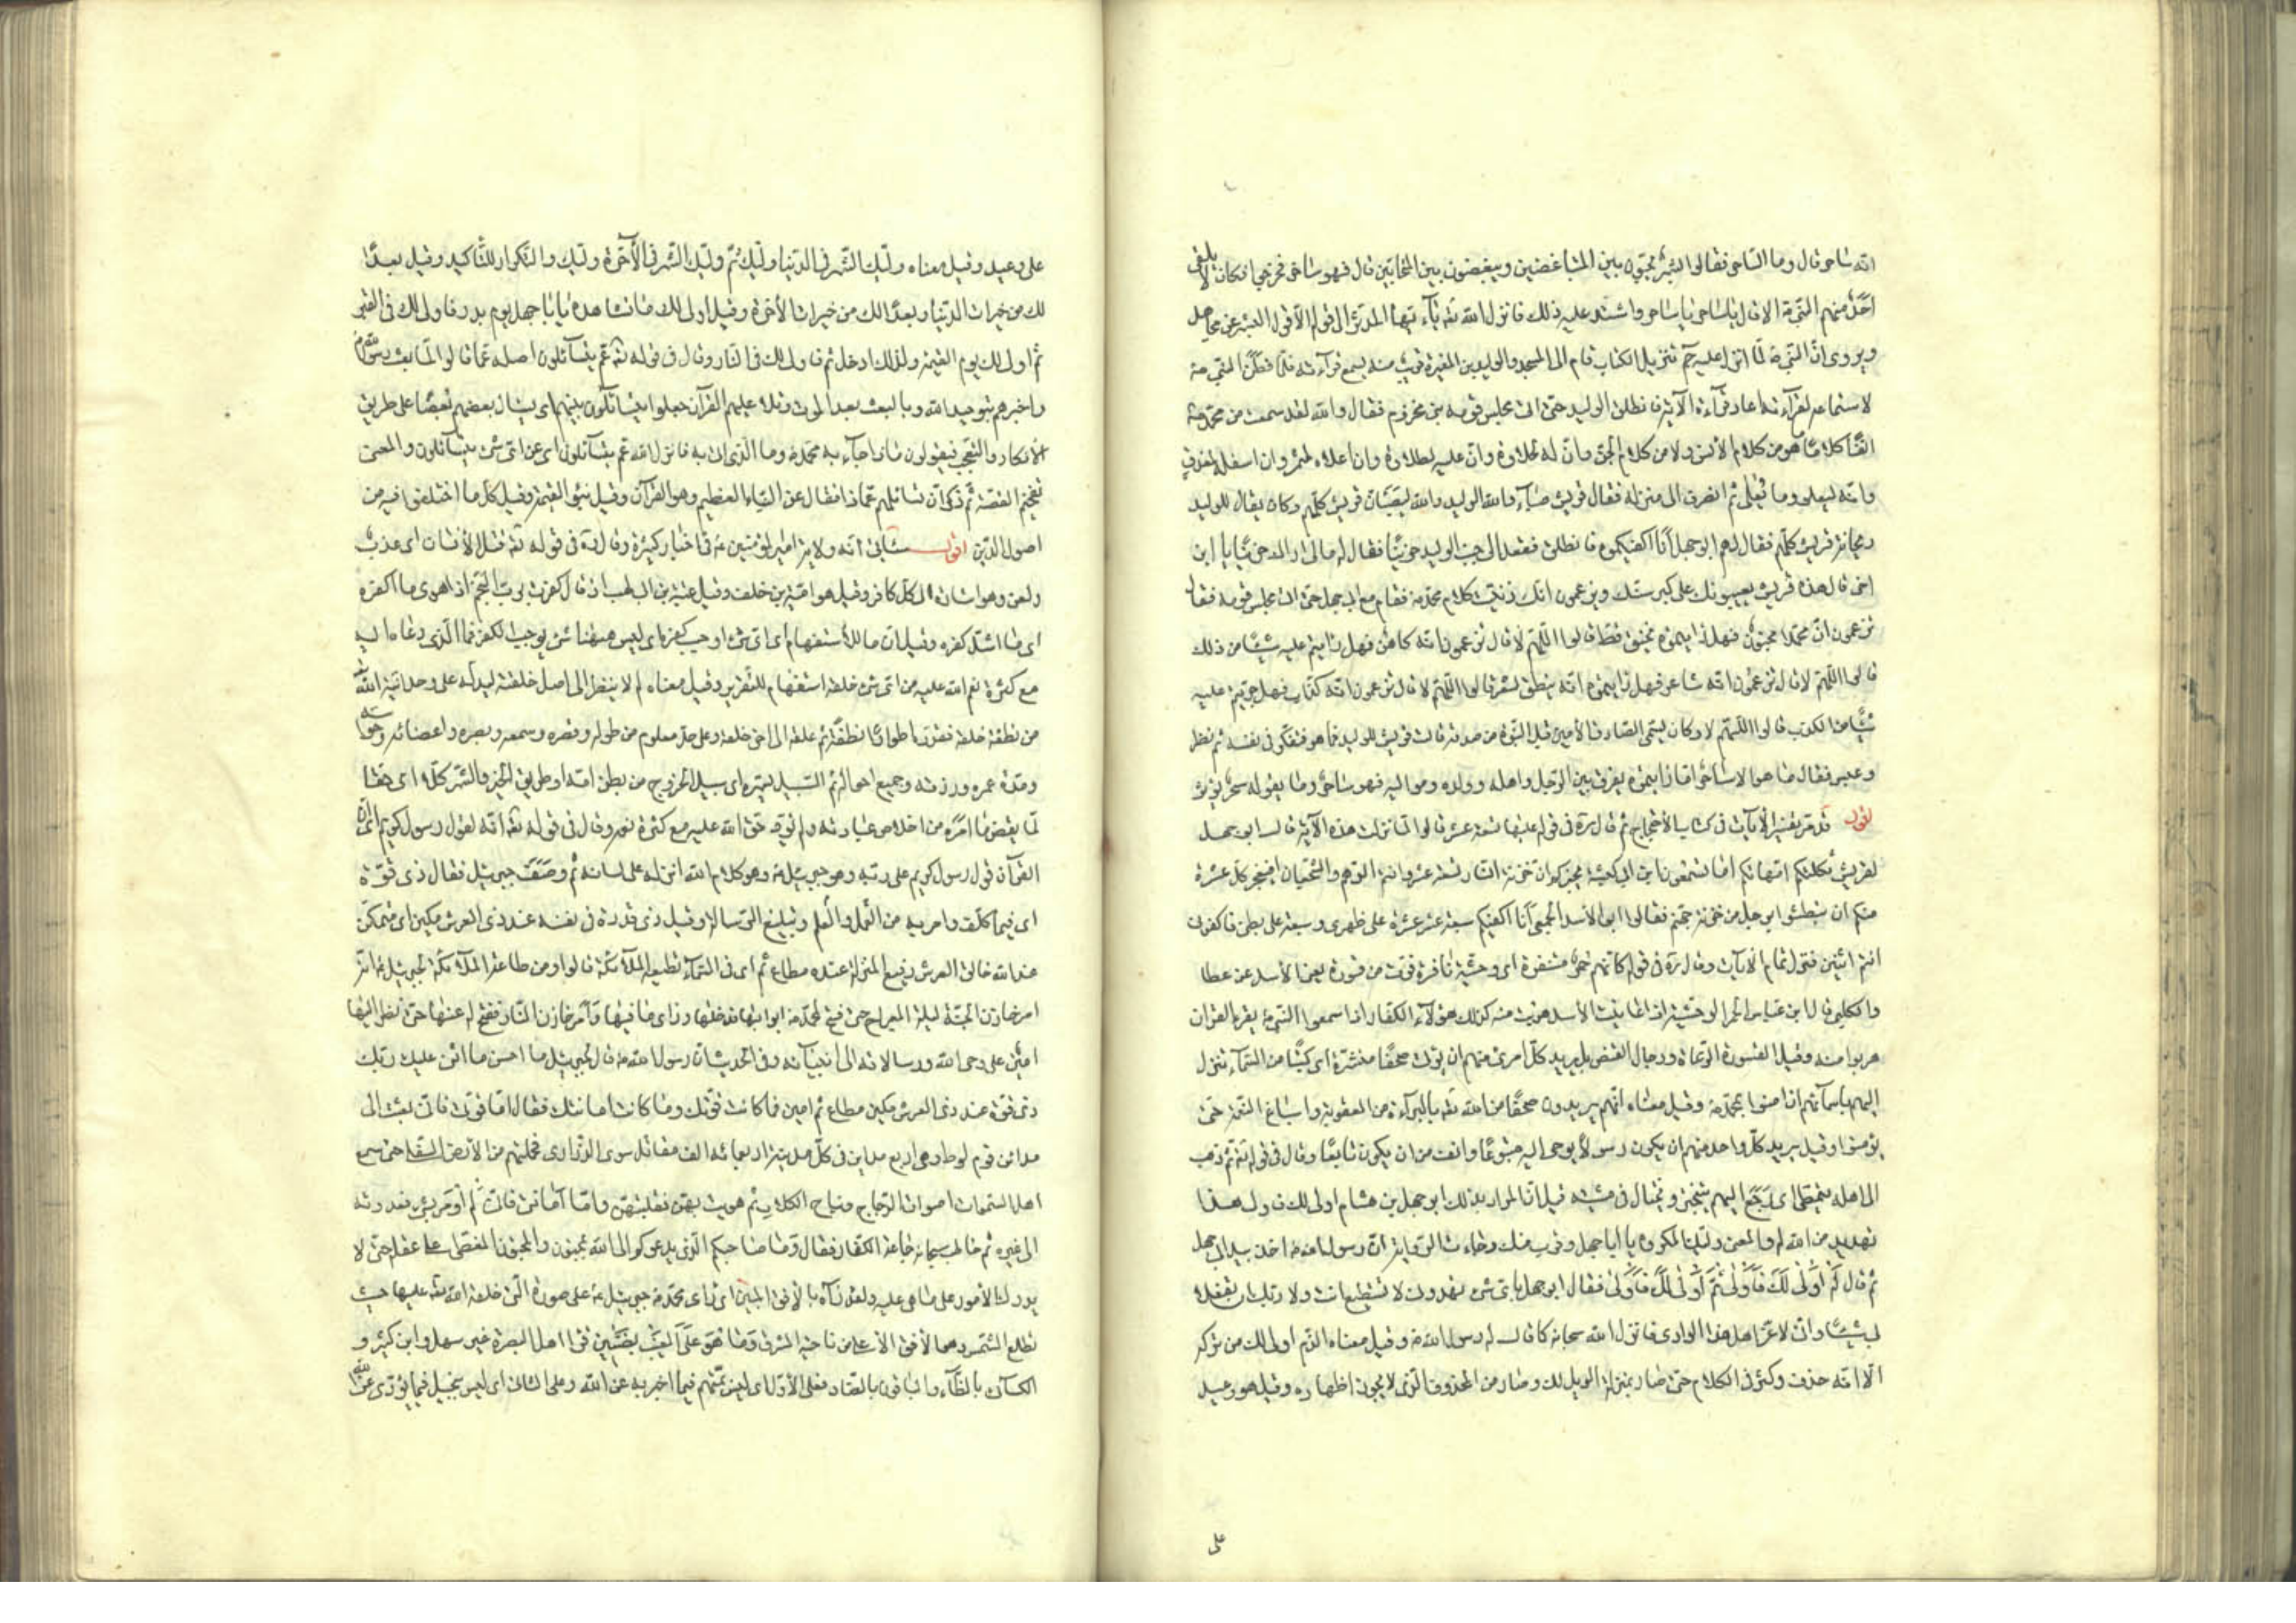 انه ساحر قال وما الساحر فقالوا البشر يحببون بين المتباغضين ويبغضون بين المتحابين قال فهو ساحر فخرجوا فكان لا يلقى
احد منهم النبي ص الا قال يا ساحر يا ساحر واشتد عليه ذلك فانزل الله تعه يا ايها المدثر الى قوله الا قول البشر عن مجاهد
ويروى ان النبي ص لما انزل عليه حم تنزيل الكتاب قام الى المسجد والوليد بن المغيرة قريب منه يسمع قراءته فلما فطن النبي ص
لاستماعه لقراءته اعاد قراءة الآية فانطلق الوليد حتى اتى مجلس قومه بني مخزوم فقال والله لقد سمعت من محمد ص
آنفا كلاما ما هو من كلام الانس ولا من كلام الجن وان له لحلاوة وان عليه لطلاوة وان اعلاه لمثمر وان اسفله لمغدق
وانه ليعلو وما يعلى ثم انصرف الى منزله فقال قريش صباء والله الوليد والله ليصبأن قريش كلهم وكان يقال للوليد
ريحانة قريش كلهم فقال لهم ابو جهل انا اكفيكموه فانطلق فقعد الى جنب الوليد حزينا فقال له ما لي اراك حزينا يا ابن
اخي قال هذه قريش يعيبونك على كبر سنك ويزعمون انك زينت كلام محمد ص فقام مع ابي جهل حتى اتى مجلس قومه فقال
تزعمون ان محمدا مجنون فهل رايتموه يخنق قط قالوا اللهم لا قال تزعمون انه كاهن فهل رايتم عليه شيئا من ذلك
قالوا اللهم لا قال تزعمون انه شاعر فهل رايتموه انه ينطق بشعر قالوا اللهم لا قال تزعمون انه كذاب فهل جربتم عليه
شيئا من الكذب قالوا اللهم لا وكان يسمى الصادق الامين قبل النبوة من صدقه قالت قريش للوليد فما هو فتفكر في نفسه ثم نظر
وعبس فقال ما هو الا ساحر اما رايتموه يفرق بين الرجل واهله وولده ومواليه فهو ساحر وما يقوله سحر يؤثر
اقول قد مر تفسير الآيات في كتاب الاحتجاج ثم قال ره في قوله عليها تسعة عشر قالوا لما نزلت هذه الآية قال ابو جهل
لقريش ثكلتكم امهاتكم اما تسمعون ابن ابي كبشة يخبركم ان خزنة النار تسعة عشر وانتم الدهم والشجعان افيعجز كل عشرة
منكم ان يبطشوا برجل من خزنة جهنم فقالوا ابو الاسد الجمحي انا اكفيكم سبعة عشر عشرة على ظهري وسبعة على بطني فاكفوني
انتم اثنين فنزل تمام الآيات وقال ره في قوله كانهم حمر مستنفرة اي وحشية نافرة فرت من قسورة يعني الاسد عن عطا
والكلبي قال ابن عباس الحمر الوحشية اذا عاينت الاسد هربت منه كذلك هؤلاء الكفار اذا سمعوا النبي ص يقرء القران
هربوا منه وقيل القسورة الرماة ورجال القنص بل يريد كل امرئ منهم ان يؤتى صحفا منشرة اي كتبا من السماء تنزل
اليهم باسمائهم ان امنوا بمحمد ص وقيل معناه انهم يريدون صحفا من الله تعه بالبراءة من العقوبة واسباغ النعمة حتى
يؤمنوا وقيل يريد كل واحد منهم ان يكون رسولا يوحى اليه متبوعا وانف من ان يكون تابعا وقال في قوله تعه ثم ذهب
الى اهله يتمطى اي رجع اليهم يتبختر ويختال في مشيته قيل ان المراد بذلك ابو جهل بن هشام اولى لك فاولى هذا
تهديد من الله له والمعنى وليك المكروه يا ابا جهل وقرب منك وجاءت الرواية ان رسول الله ص اخذ بيد ابي جهل
ثم قال له اولى لك فاولى ثم اولى لك فاولى فقال ابو جهل باي شيء تهددني لا تستطيع انت ولا ربك ان تفعلا
بي شيئا واني لاعز اهل هذا الوادي فانزل الله سبحانه كما قال له رسول الله ص وقيل معناه الذم اولى لك من تركه
الا انه حذف وكثر في الكلام حتى صار بمنزلة الويل لك وصار من المحذوف الذي لا يجوز اظهاره وقيل هو وعيد
على
على وعيد وقيل معناه وليك الشر في الدنيا وليك ثم وليك الشر في الآخرة وليك والتكرار للتاكيد وقيل بعدا
لك من خيرات الدنيا وبعدا لك من خيرات الآخرة وقيل اولى لك ما تشاهده يا ابا جهل يوم بدر فاولى لك في القبر
ثم اولى لك يوم القيمة ولذلك ادخل ثم فاولى لك في النار وقال في قوله تعه عم يتسائلون اصله عما قالوا لما بعث رسول الله ص
واخبرهم بتوحيد الله وبالبعث بعد الموت وتلا عليهم القرآن جعلوا يتسائلون بينهم اي يسال بعضهم بعضا على طريق
الانكار والتعجب فيقولون ماذا جاء به محمد ص وما الذي اتى به فانزل الله عم يتسائلون اي عن اي شيء يتسائلون والمعنى
تفخيم القصة ثم ذكر ان تسائلهم عماذا فقال عن النباء العظيم وهو القرآن وقيل نبؤ القيمة وقيل كل ما اختلفوا فيه من
اصول الدين اقول سياتي انه ولاية امير المؤمنين ع في اخبار كثيرة وقال ره في قوله تعه قتل الانسان اي عذب
ولعن وهو اشارة الى كل كافر وقيل هو امية بن خلف وقيل عتبة بن ابي لهب اذ قال كفرت برب النجم اذا هوى ما اكفره
اي ما اشد كفره وقيل ان ما للاستفهام اي اي شيء اوجب كفره اي ليس ههنا شيء يوجب الكفر فما الذي دعاه اليه
مع كثرة نعم الله عليه من اي شيء خلقه استفهام للتقرير وقيل معناه لم لا ينظر الى اصل خلقته ليدله على وحدانية الله
من نطفة خلقه فقدره اطوارا نطفة ثم علقة الى اخر خلقه وعلى حد معلوم من طوله وقصره وسمعه وبصره واعضائه وحواسه
ومدة عمره ورزقه وجميع احواله ثم السبيل يسره اي سبيل الخروج من بطن امه او طريق الخير والشر كلا اي حقا
لما يقض ما امره من اخلاص عبادته ولم يؤد حق الله عليه مع كثرة نعمه وقال في قوله تعه انه لقول رسول كريم اي ان
القرآن قول رسول كريم على ربه وهو جبرئيل ع وهو كلام الله انزله على لسانه ثم وصف جبرئيل فقال ذي قوة
اي فيما كلف وامر به من العمل والعلم وتبليغ الرسالة وقيل ذي قدرة في نفسه عند ذي العرش مكين اي متمكن
عند الله خالق العرش رفيع المنزلة عنده مطاع ثم اي في السماء تطيعه الملائكة قالوا ومن طاعة الملائكة لجبرئيل ع انه
امر خازن الجنة ليلة المعراج حتى فتح لمحمد ص ابوابها فدخلها وراى ما فيها وامر خازن النار ففتح له عنها حتى نظر اليها
امين على وحي الله ورسالاته الى انبيائه وفي الحديث ان رسول الله ص قال لجبرئيل ما احسن ما اثنى عليك ربك
ذي قوة عند ذي العرش مكين مطاع ثم امين فما كانت قوتك وما كانت امانتك فقال اما قوتي فاني بعثت الى
مدائن قوم لوط وهي اربع مداين في كل مدينة اربعمائة الف مقاتل سوى الذراري فحملتهم من الارض السفلى حتى سمع
اهل السموات اصوات الدجاج ونباح الكلاب ثم هويت بهن فقلبتهن واما امانتي فاني لم اومر بشيء فعدوته
الى غيره ثم خاطب سبحانه جماعة الكفار فقال وما صاحبكم الذي يدعوكم الى الله بمجنون والمجنون المغطى على عقله حتى لا
يدرك الامور على ما هي عليه ولقد رآه بالافق المبين اي راى محمد ص جبرئيل ع على صورة التي خلقه الله تعه عليها حيث
تطلع الشمس وهو الافق الاعلى من ناحية المشرق وما هو على الغيب بضنين قرا اهل البصرة غير سهل وابن كثير و
الكسائي بالظاء والباقون بالضاد فعلى الاول اي ليس بمتهم فيما اخبر به عن الله وعلى الثاني اي ليس ببخيل فيما يؤدي عن الله